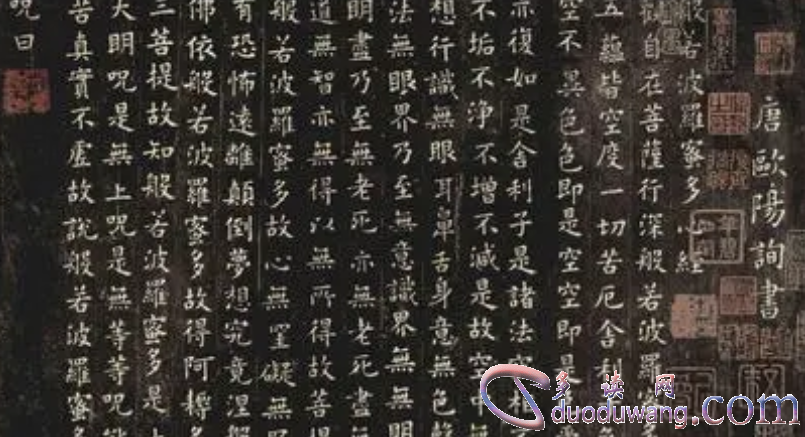 唐歐陽詢書
般若波羅蜜多心經
觀自在菩薩行深般若波羅
五蘊皆空度一切苦厄舍利
空不異色色即是空空即是
亦復如是舍利子是諸法空相
不垢不淨不增不減是故空中無
想行識無眼耳鼻舌身意無色聲
法無眼界乃至無意識界無無明
明盡乃至無老死亦無老死盡
道無智亦無得以無所得故菩提
般若波羅蜜多故心無罣礙無
有恐怖遠離顛倒夢想究竟涅槃
佛依般若波羅蜜多故得阿耨多
三菩提故知般若波羅蜜多是
大明咒是無上咒是無等等咒
苦真實不虛故說般若波羅蜜多
咒曰
多读网
duoduwang.com